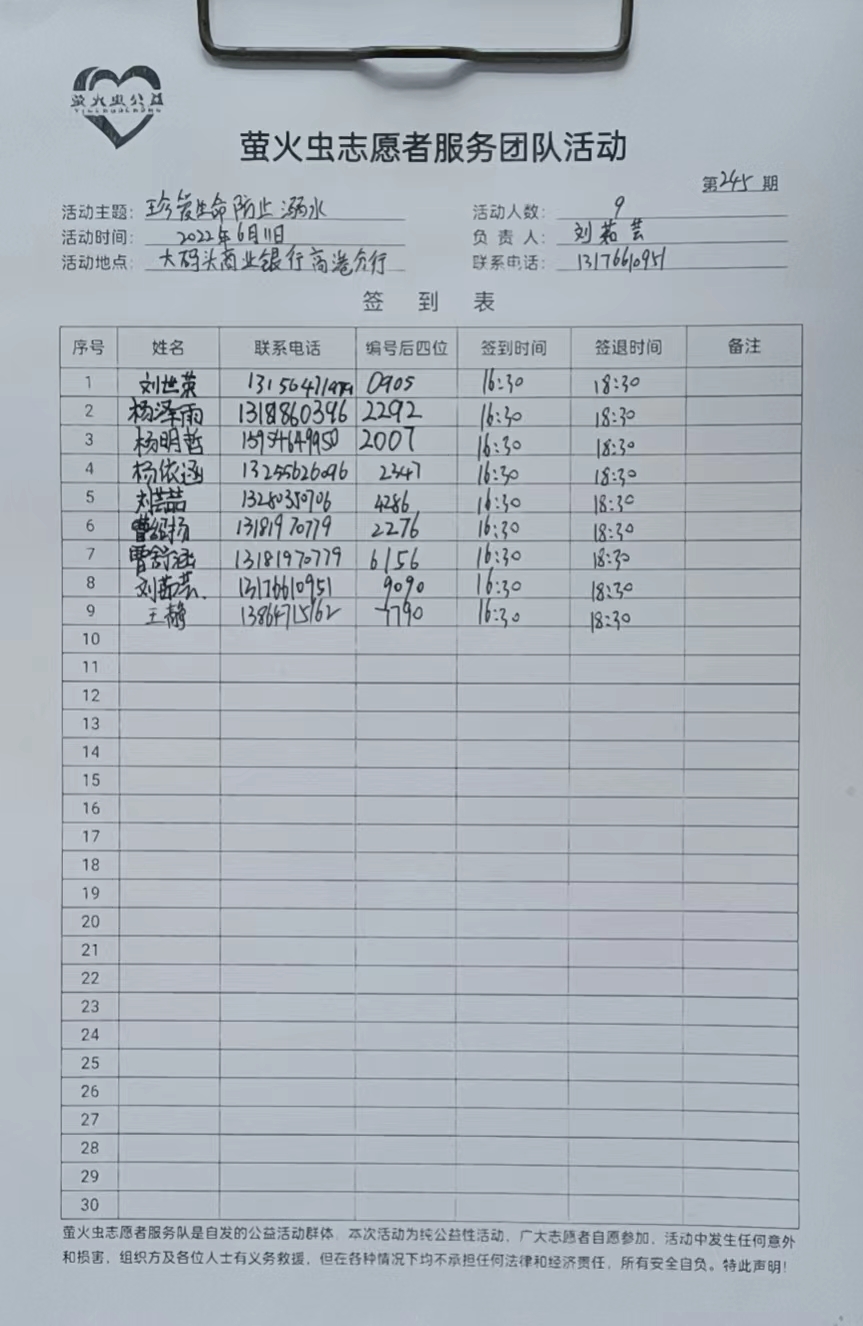 萤火虫公益
萤火虫志愿者服务团队活动
第245期
活动主题：珍爱生命 防止溺水 活动人数：9
活动时间：2022年6月11日 负责人：刘茹芸
活动地点：大码头商业银行高港分行 联系电话：13176610951
签到表
序号 姓名 联系电话 编号后四位 签到时间 签退时间 备注
1 刘世荣 0905 16:30 18:30
2 杨泽雨 13181860396 2292 16:30 18:30
3 杨明哲 15954649950 2007 16:30 18:30
4 杨依涵 13255626096 2347 16:30 18:30
5 刘喆喆 13280350706 4286 16:30 18:30
6 曹绍扬 13181970779 2276 16:30 18:30
7 曹舒涵 13181970779 6156 16:30 18:30
8 刘茹芸 13176610951 9090 16:30 18:30
9 王静 13864715162 7790 16:30 18:30
10
11
12
13
14
15
16
17
18
19
20
21
22
23
24
25
26
27
28
29
30
萤火虫志愿者服务队是自发的公益活动群体，本次活动为纯公益性活动，广大志愿者自愿参加，活动中发生任何意外
和损害，组织方及各位人士有义务救援，但在各种情况下均不承担任何法律和经济责任，所有安全自负。特此声明！